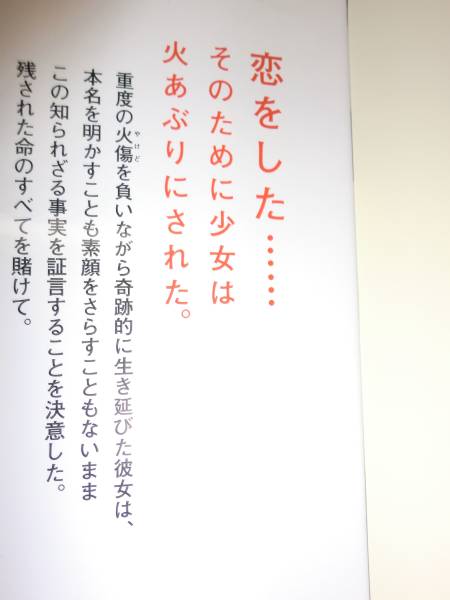 恋をした……
そのために少女は
火あぶりにされた。
重度の火傷を負いながら奇跡的に生き延びた彼女は、
やけど
本名を明かすことも素顔をさらすこともないまま
この知られざる事実を証言することを決意した。
残された命のすべてを賭けて。